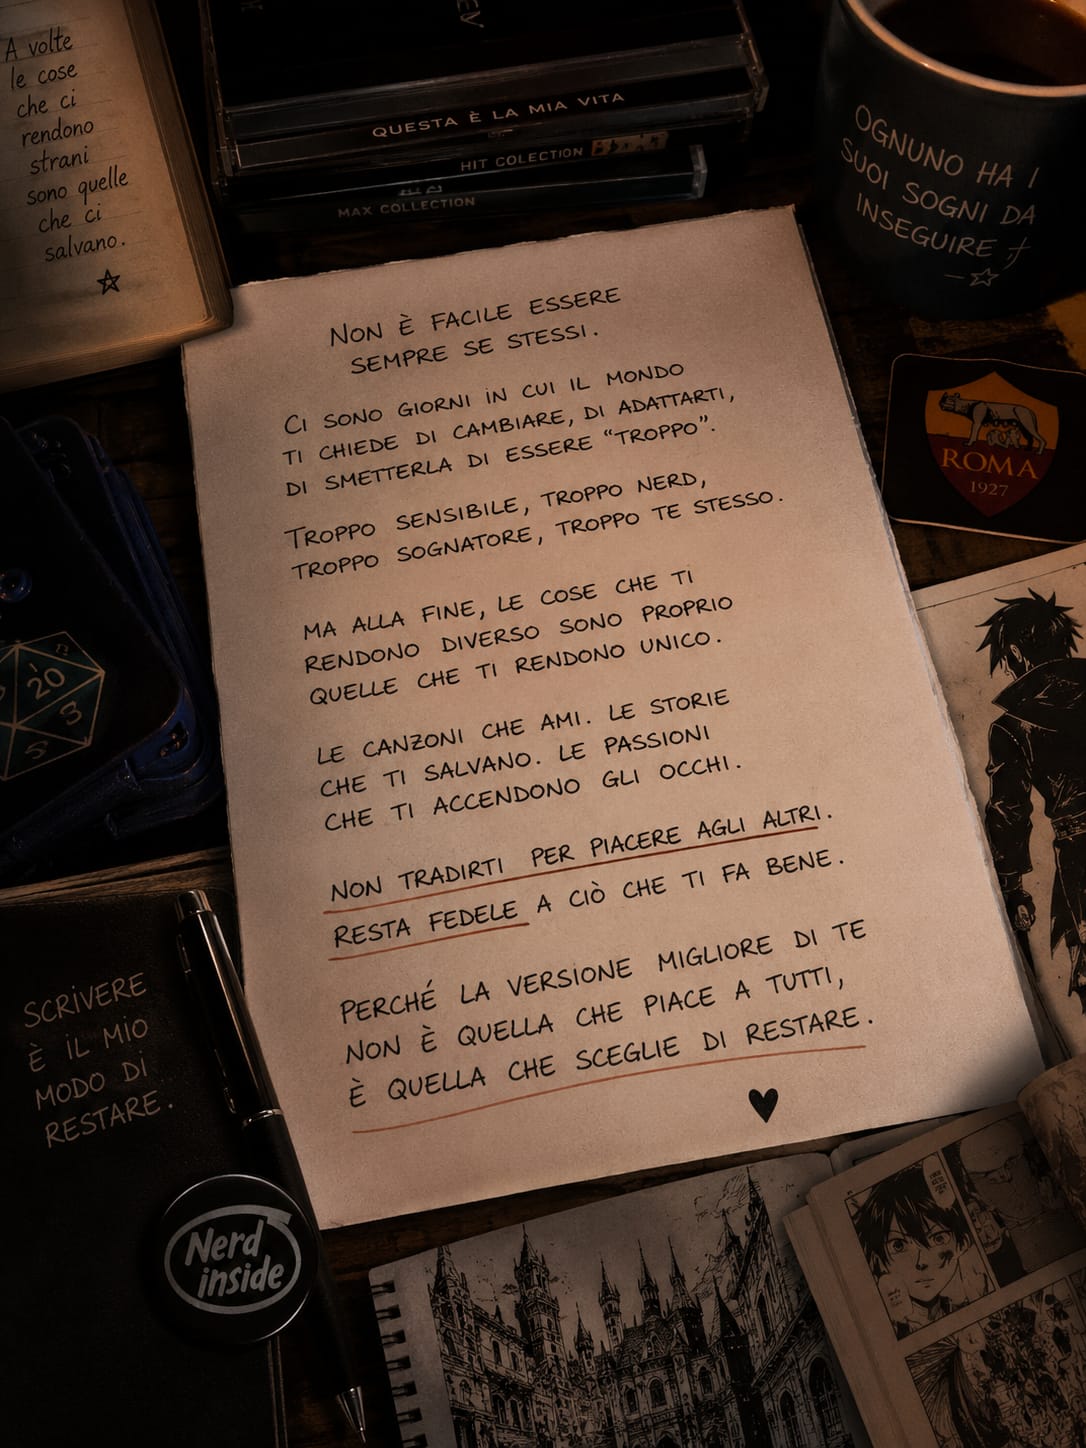 A volte
le cose
che ci
rendono
strani
sono quelle
che ci
salvano.
QUESTA È LA MIA VITA
HIT COLECTION
MAX COLLECTION
OGNUNO HA I
SUOI SOGNI DA
INSEGUIRE
NON È FACILE ESSERE
SEMPRE SE STESSI.
CI SONO GIORNI IN CUI IL MONDO
TI CHIEDE DI CAMBIARE, DI ADATTARTI,
DI SMETTERLA DI ESSERE “TROPPO”.
TROPPO SENSIBILE, TROPPO NERD,
TROPPO SOGNATORE, TROPPO TE STESSO.
MA ALLA FINE, LE COSE CHE TI
RENDONO DIVERSO SONO PROPRIO
QUELLE CHE TI RENDONO UNICO.
LE CANZONI CHE AMI. LE STORIE
CHE TI SALVANO. LE PASSIONI
CHE TI ACCENDONO GLI OCCHI.
NON TRADIRTI PER PIACERE AGLI ALTRI.
RESTA FEDELE A CIÒ CHE TI FA BENE.
PERCHÉ LA VERSIONE MIGLIORE DI TE
NON È QUELLA CHE PIACE A TUTTI,
È QUELLA CHE SCEGLIE DI RESTARE.
ROMA
1927
20
SCRIVERE
È IL MIO
MODO DI
RESTARE.
Nerd
inside